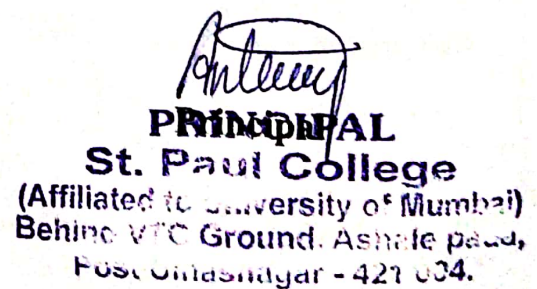 Principal
PRINCIPAL
St. Paul College
(Affiliated to University of Mumbai)
Behind VTC Ground, Ashale
Post Ulhasnagar - 421 004.